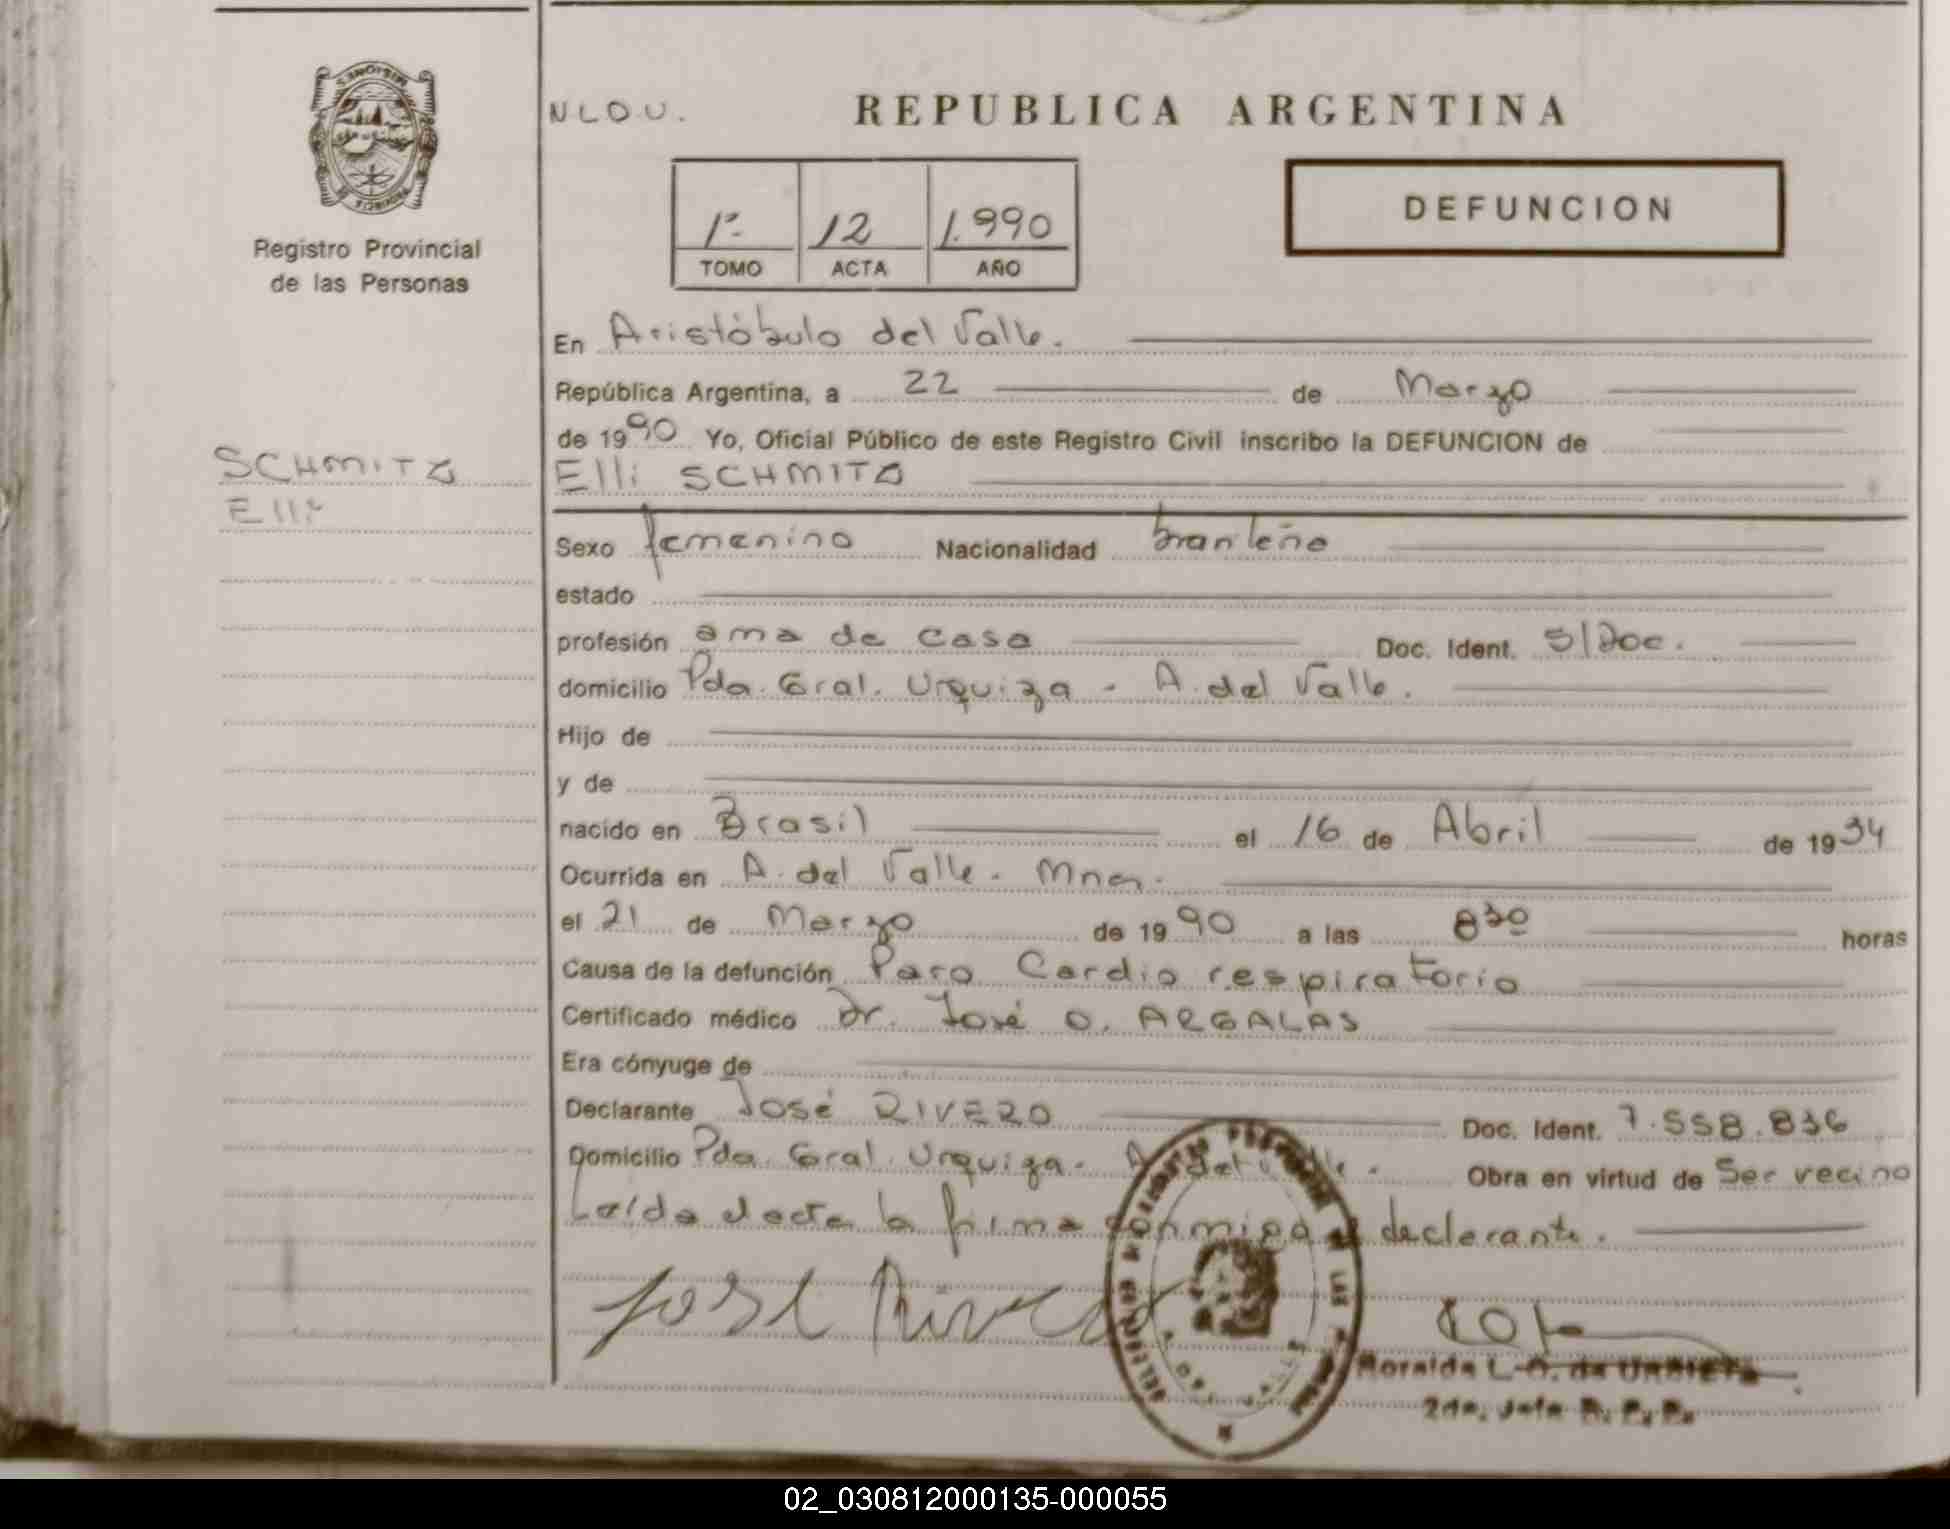 MISIONES
PROVINCIA
Registro Provincial
de las Personas
SCHMITZ
Elli
N L O. U.
REPUBLICA ARGENTINA
1º 12 1.990
TOMO ACTA AÑO
DEFUNCION
En Aristóbulo del Valle.
República Argentina, a 22 de Marzo
de 1990 Yo, Oficial Público de este Registro Civil inscribo la DEFUNCION de
Elli SCHMITZ
Sexo femenino Nacionalidad brasileña
estado
profesión ama de casa Doc. Ident. S/Doc.
domicilio Pda. Gral. Urquiza - A. del Valle.
Hijo de
y de
nacido en Brasil el 16 de Abril de 1934
Ocurrida en A. del Valle. Mnes.
el 21 de Marzo de 1990 a las 8 30 horas
Causa de la defunción Paro Cardio respiratorio
Certificado médico Dr. José O. ARGALAS
Era cónyuge de
Declarante José RIVERO Doc. Ident. 7.558.836
Domicilio Pda. Gral. Urquiza - A. del Valle. Obra en virtud de Ser vecino
Leída el acta la firma conmigo el declarante.
José Rivero
2da. Jefe R. P. P.
02_030812000135-000055